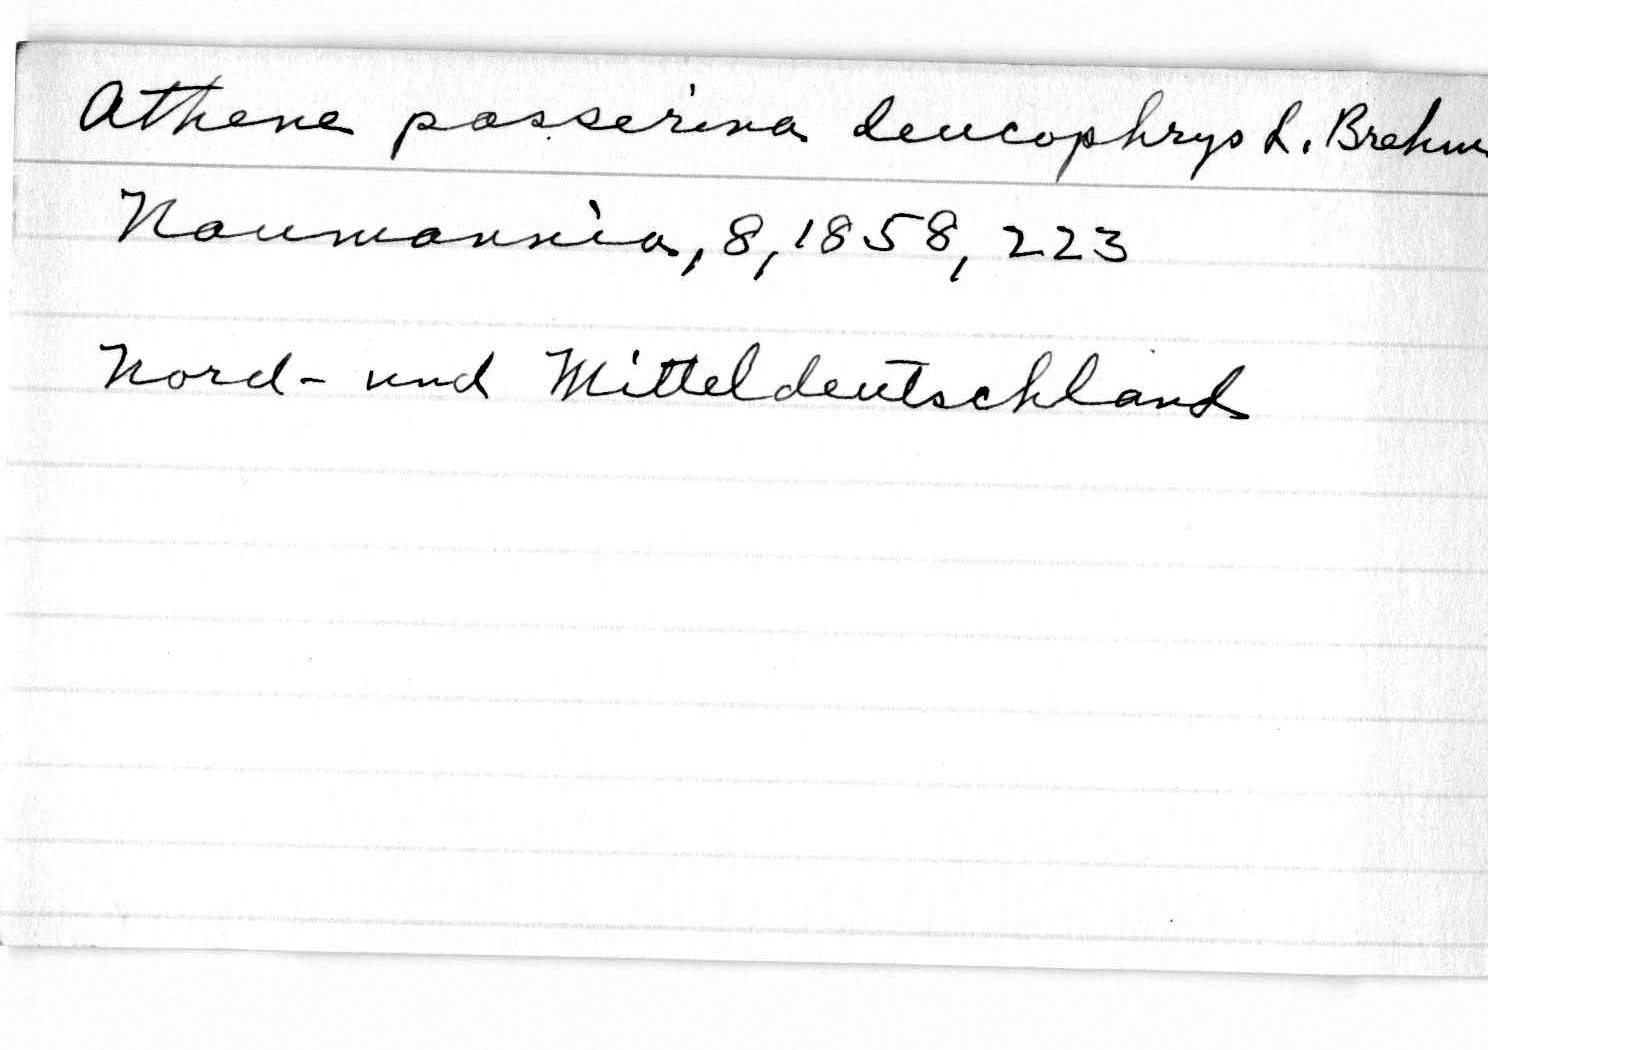 Athene passerina leucophrys L. Brehm
Naumannia, 8, 1858, 223
Nord- und Mitteldeutschland